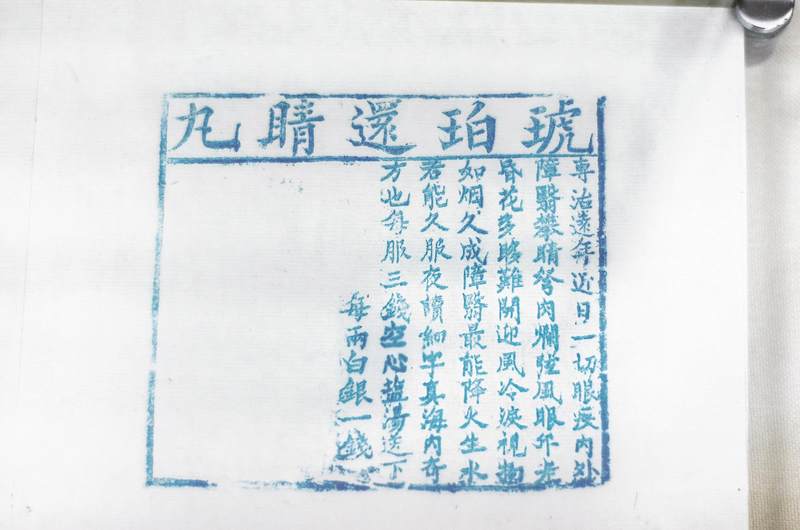 琥珀還睛丸
專治遠年近日一切眼疾內外
障翳攀睛努肉爛弦風眼
昏花多眵難開迎風冷淚視物
如烟久成障翳最能降火生水
若能久服夜讀細字真海內奇
方也每服三錢空心盐湯送下
每兩白銀一錢